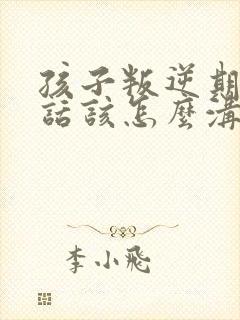 孩子叛逆期
話該怎麼溝
李小飛